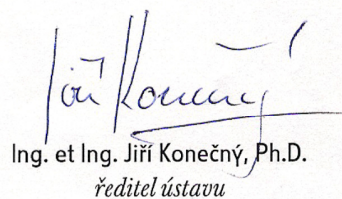 Jiří Konečný
Ing. et Ing. Jiří Konečný, Ph.D.
ředitel ústavu